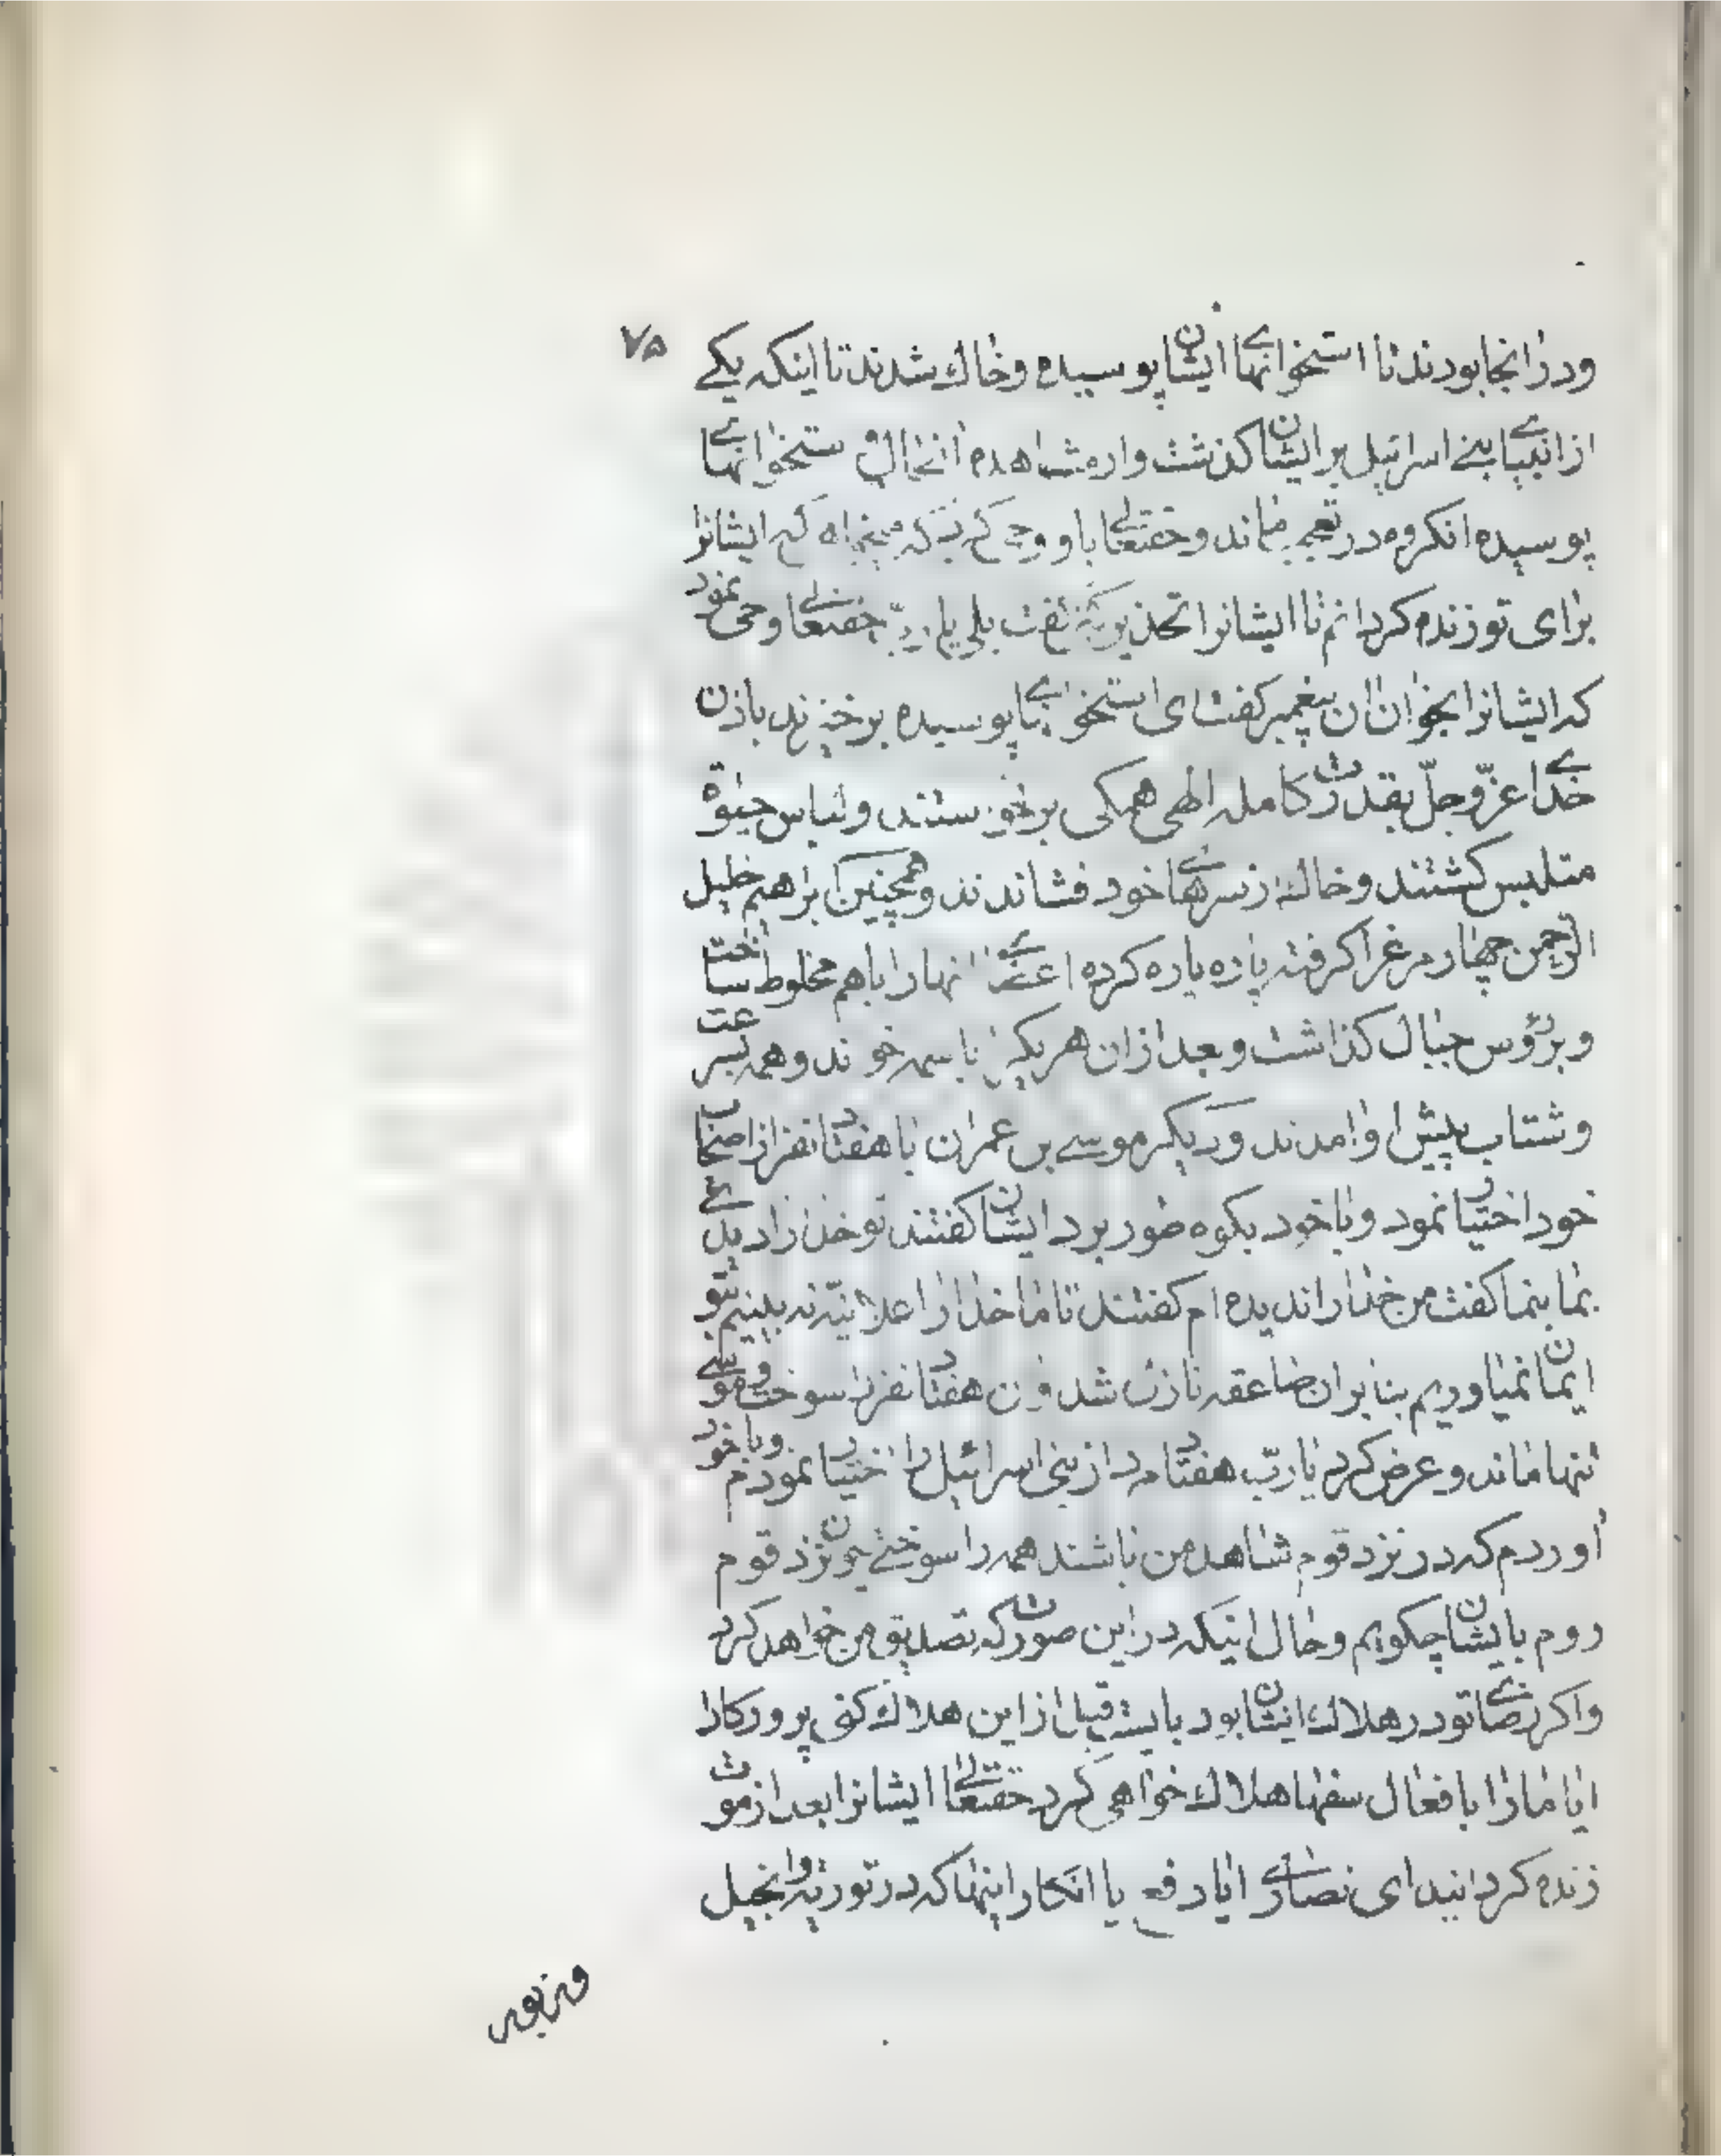 ۷۵
ودر انجا بودند تا استخوانهای ایشان پوسیده وخاك شدند تا اینکه یکے
از انبیای بنے اسرائیل بر ایشان کذشت واز مشاهده انحال و ستخوانهای
پوسیده انکروه در تعجب بماند وحقتعالی باو وحی که میخواهی که ایشانرا
برای تو زنده کردانم تا ایشانرا تحذیر کنی کفت بلی یا رب حقتعالی وحی نمود
که ایشانرا بخوان ان پیغمبر کفت ای استخوانهای پوسیده برخیزید باذن
خدای عزّوجلّ بقدرت کامله الهی همکی برخواستند ولباس حیوة
متلبس کشتند وخاك از سرهای خود فشاندند وهمچنین ابراهیم خلیل
الرحمن چهار مرغ را کرفته پاره پاره کرده اعضای انها را باهم مخلوط ساخت
وبر رؤس جبال کذاشت وبعد از ان هر یك را باسمه خواند وهمه بسرعت
وشتاب پیش او امدند ودیکر موسے بن عمران با هفتاد نفر از اصحاب
خود اختیار نمود وبا خود بکوه طور برد ایشان کفتند تو خدا را دیدۀ
بما بنما کفت من خدا را ندیده ام کفتند تا ما خدا را علانیّه نه بینیم بتو
ایمان نمیاوریم بنابران صاعقه نازل شد وان هفتاد نفر را سوخت وموسے
تنها ماند وعرض کرد یا ربّ هفتاد مرد از بنی اسرائیل را اختیار نمودم وبا خود
اوردم که در نزد قوم شاهد من باشند همه را سوختے چون نزد قوم
روم بایشان چکویم وحال اینکه در این صورت که تصدیق من خواهد کرد
واکر رضای تو در هلاك ایشان بود بایست قبل از این هلاك کنی پرورکارا
ایا ما را با فعال سفها هلاك خواهی کرد حقتعالی ایشانرا بعد از موت
زنده کردانید ای نصاری ایا رفع یا انکار اینها که در توریة وانجیل
وزبور